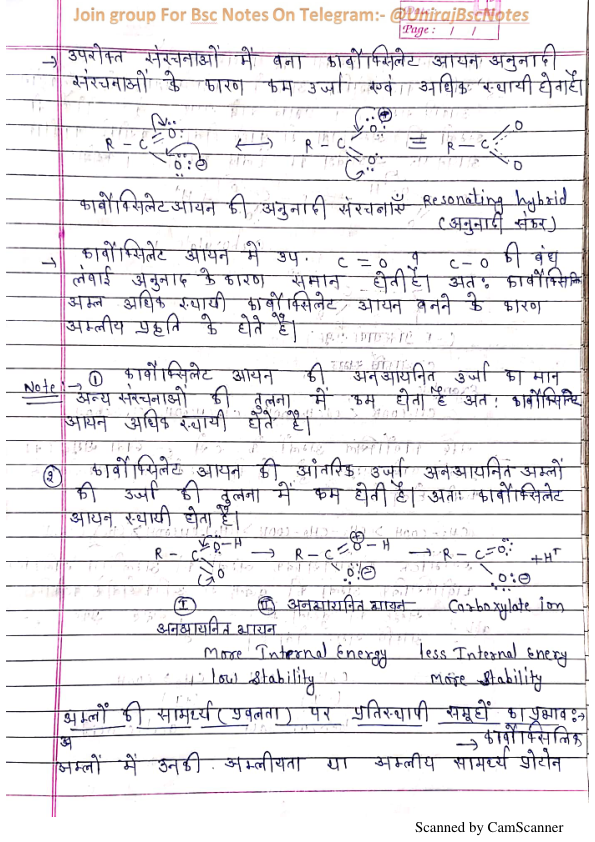 Join group For Bsc Notes On Telegram:- @UnirajBscNotes
Page: / /
→ उपरोक्त संरचनाओं में बना कार्बोक्सिलेट आयन अनुनादी
संरचनाओं के कारण कम उर्जा एवं अधिक स्थायी होता है।
R - C =O: O:⊖ ⟷ R - C O: O:⊖ ≡ R - C O O
कार्बोक्सिलेट आयन की अनुनादी संरचनाएँ Resonating hybrid
(अनुनादी संकर)
→ कार्बोक्सिलेट आयन में उप. C = O व C - O की बंध
लंबाई अनुनाद के कारण समान होती है। अतः कार्बोक्सिलिक
अम्ल अधिक स्थायी कार्बोक्सिलेट आयन बनने के कारण
अम्लीय प्रकृति के होते है।
Note: → ① कार्बोक्सिलेट आयन की अनआयनित उर्जा का मान
अन्य संरचनाओं की तुलना में कम होता है अतः
आयन अधिक स्थायी होते है।
② कार्बोक्सिलेट आयन की आंतरिक उर्जा अनआयनित अम्लों
की उर्जा की तुलना में कम होती है। अतः कार्बोक्सिलेट
आयन स्थायी होता है।
R - C O-H O → R - C =O-H O:⊖ → R - C =O: O:⊖ + H⁺
Ⅰ Ⅱ अनआयनित आयन Carboxylate ion
अनआयनित आयन
More Internal Energy less Internal Energy
low stability More Stability
अम्लों की सामर्थ्य (प्रबलता) पर प्रतिस्थापी समूहों का प्रभाव:→
अ → कार्बोक्सिलिक
अम्लों में उनकी अम्लीयता या अम्लीय सामर्थ्य प्रोटोन
Scanned by CamScanner